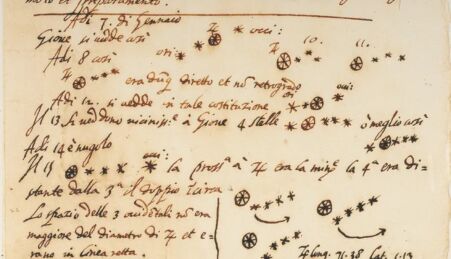 Adi 7. di Gennaio
Gioue si uedde così ori: ♃ occi:
Adi 8 così ori: 10. 11.
♃ era dūq diretto et nō retrogrado
Adi 12. si uedde in tale costituzione ori occi:
Il 13. si ueddono uiciniss.e à Gioue 4 stelle ò meglio così
Adi 14 è nugolo
Il 15 occi: la pross.a à ♃ era la min.e la 4.a era di-
stante dalla 3.a il doppio
Lo spazio delle 3 occidetali nō era
maggiore del diametro di ♃ et e-
rano in linea retta.
♃ long. 71.38 Lat. 1.13